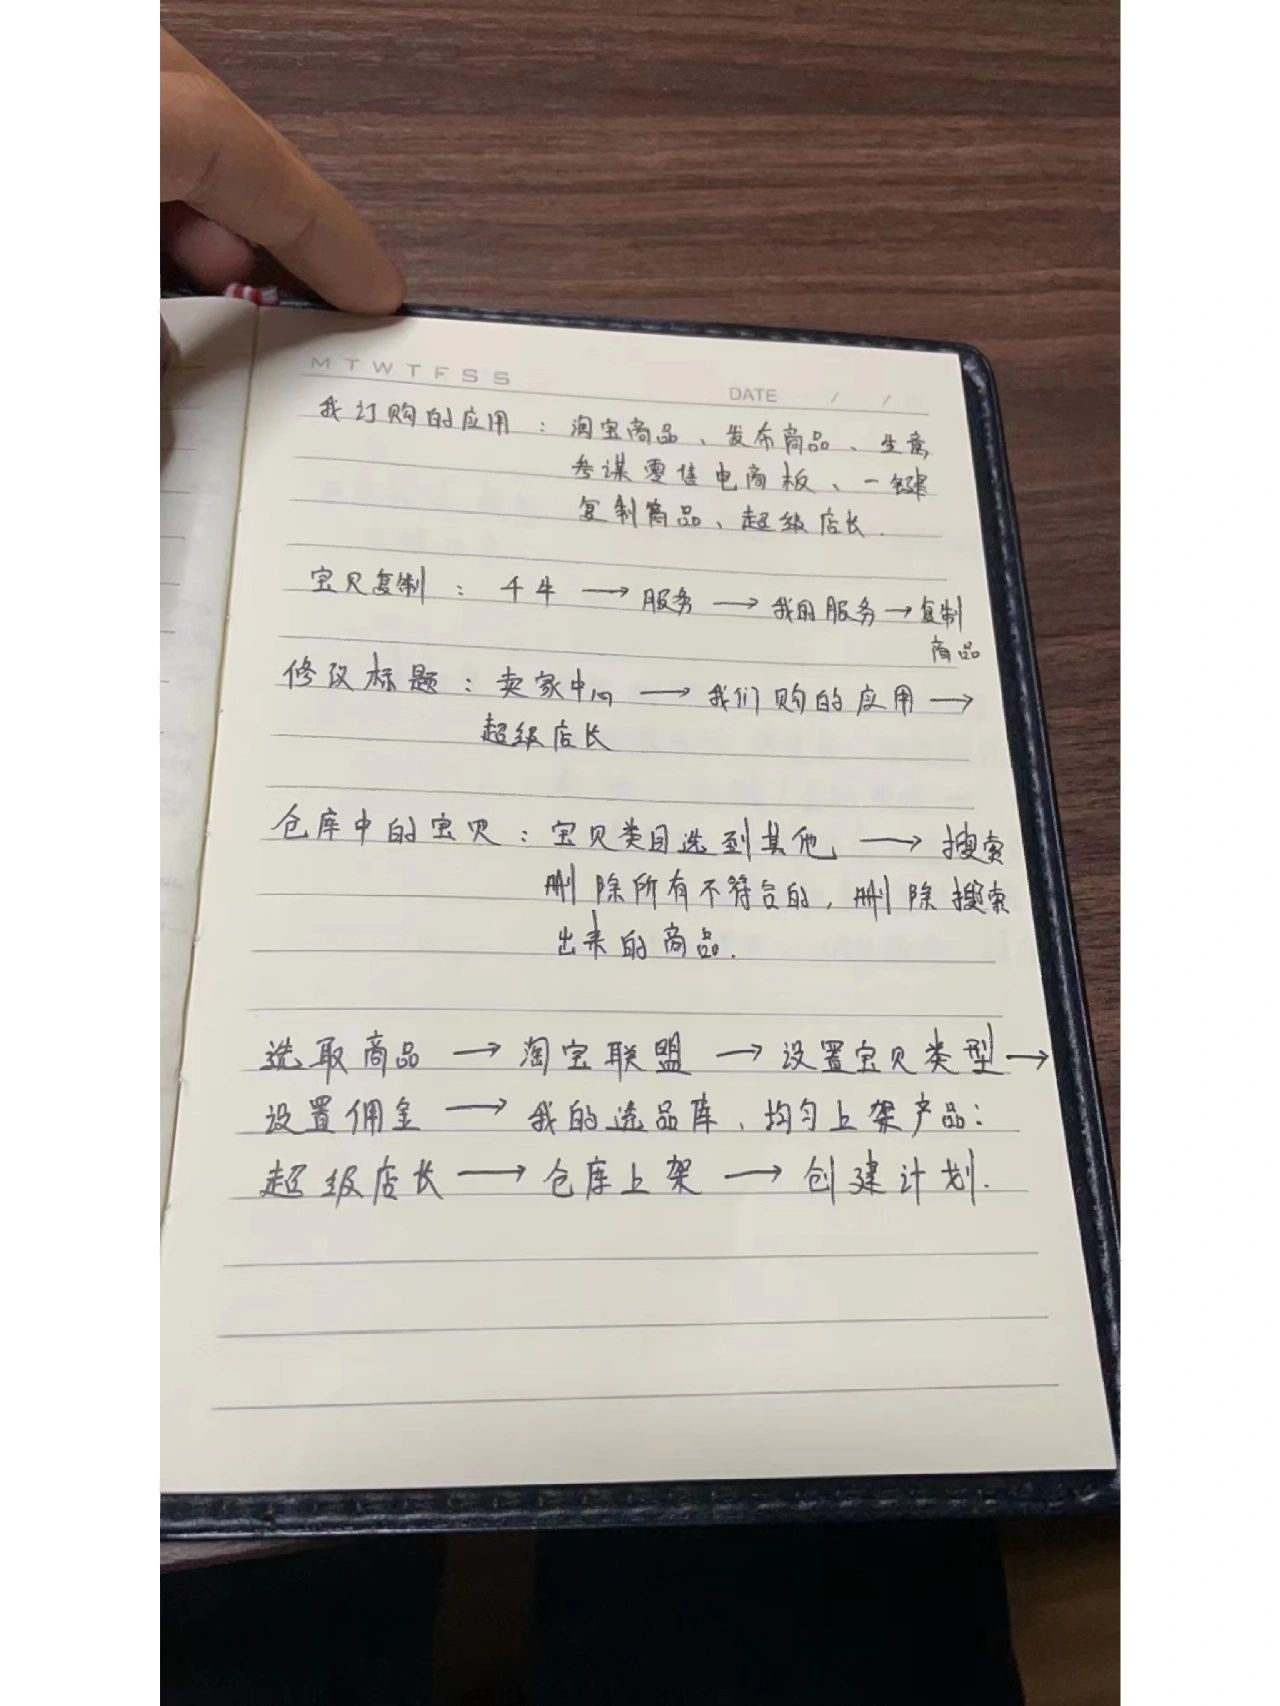 M T W T F S S
DATE / /
我订购的应用：淘宝商品、发布商品、生意
参谋零售电商板、一键
复制商品、超级店长.
宝贝复制：千牛→服务→我的服务→复制
商品
修改标题：卖家中心→我们购的应用→
超级店长
仓库中的宝贝：宝贝类目选到其他→搜索
删除所有不符合的，删除搜索
出来的商品.
选取商品→淘宝联盟→设置宝贝类型→
设置佣金→我的选品库、均匀上架产品：
超级店长→仓库上架→创建计划.